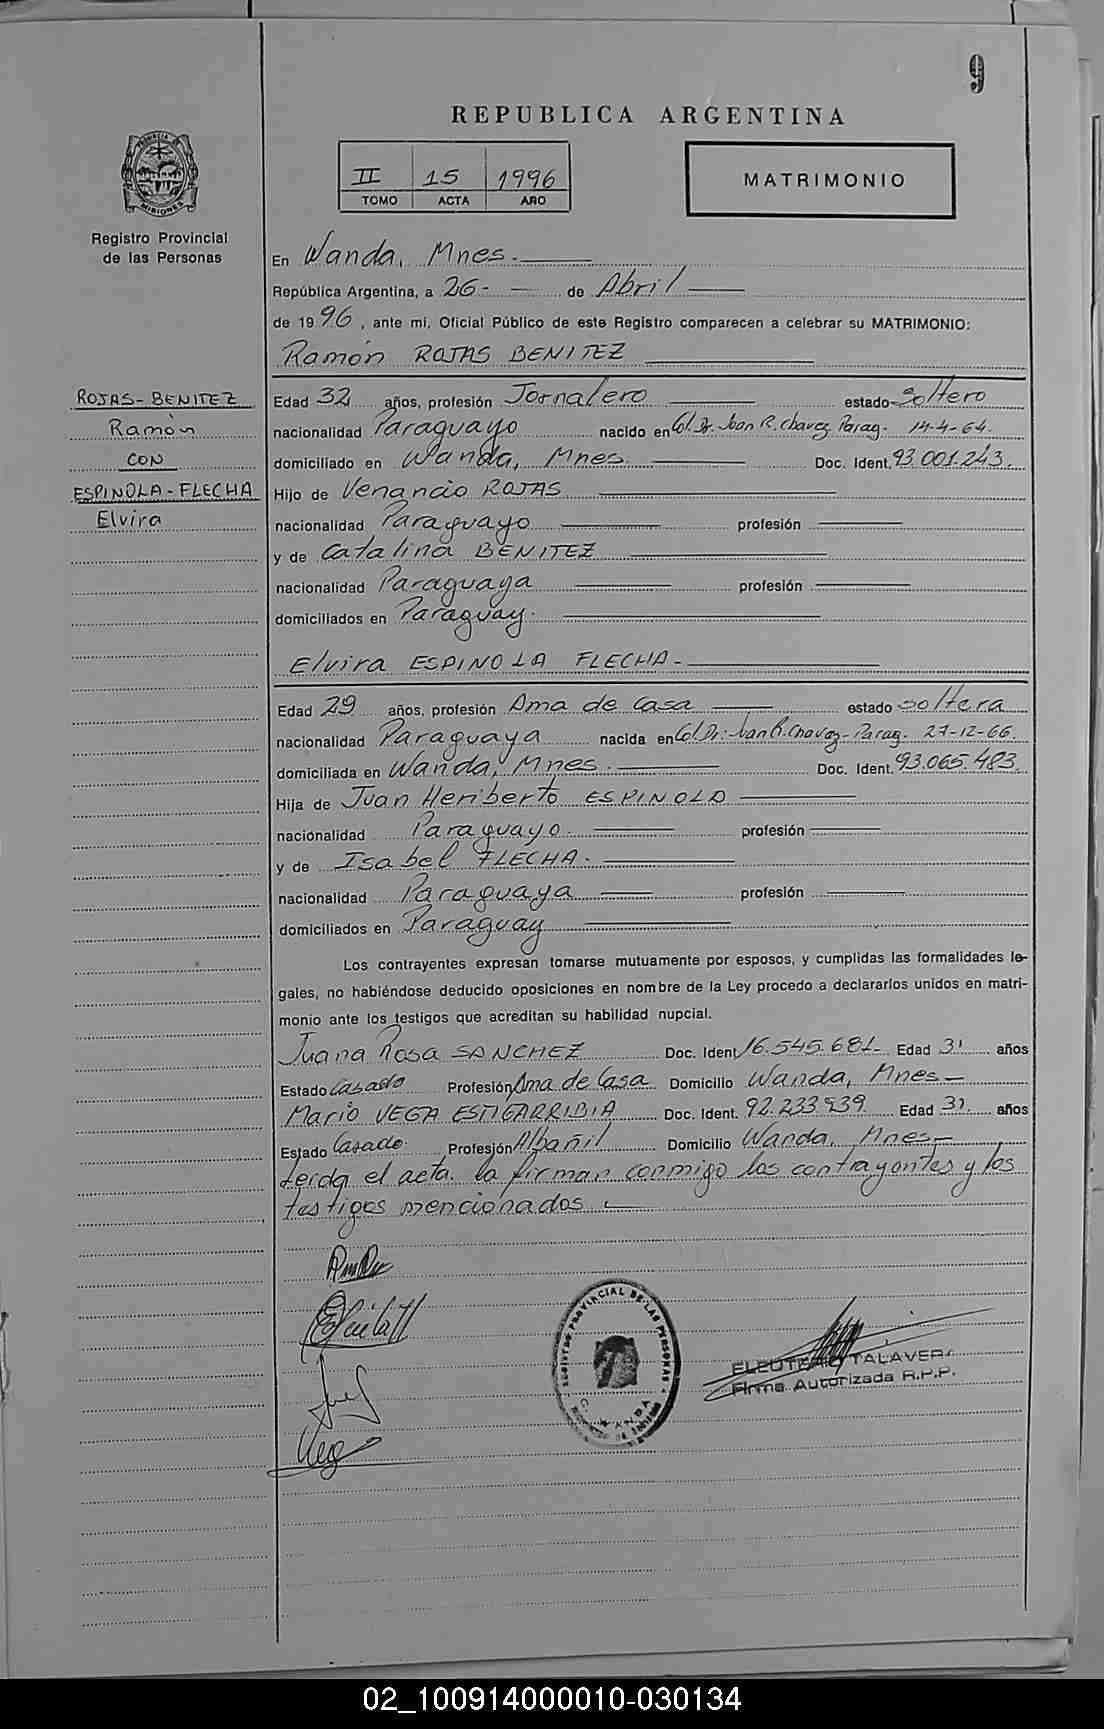 9
REPUBLICA ARGENTINA
PROVINCIA DE MISIONES
II 15 1996
TOMO ACTA AÑO
MATRIMONIO
Registro Provincial
de las Personas
En Wanda, Mnes.
República Argentina, a 26- de Abril
de 1996, ante mi, Oficial Público de este Registro comparecen a celebrar su MATRIMONIO:
Ramón ROJAS BENITEZ
ROJAS-BENITEZ
Ramón
CON
ESPINOLA-FLECHA
Elvira
Edad 32 años, profesión Jornalero estado Soltero
nacionalidad Paraguayo nacido en Col. Dr. Juan R. Chavez Parag. 14-4-64.
domiciliado en Wanda, Mnes. Doc. Ident. 93.001.243.
Hijo de Venancio ROJAS
nacionalidad Paraguayo profesión
y de Catalina BENITEZ
nacionalidad Paraguaya profesión
domiciliados en Paraguay.
Elvira ESPINOLA FLECHA-
Edad 29 años, profesión Ama de Casa estado soltera
nacionalidad Paraguaya nacida en Col. Dr. Juan R. Chavez- Parag. 27-12-66.
domiciliada en Wanda, Mnes. Doc. Ident. 93.065.483.
Hija de Juan Heriberto ESPINOLA
nacionalidad Paraguayo. profesión
y de Isabel FLECHA.
nacionalidad Paraguaya profesión
domiciliados en Paraguay
Los contrayentes expresan tomarse mutuamente por esposos, y cumplidas las formalidades le-
gales, no habiéndose deducido oposiciones en nombre de la Ley procedo a declararlos unidos en matri-
monio ante los testigos que acreditan su habilidad nupcial.
Juana Rosa SANCHEZ Doc. Ident. 16.545.681- Edad 31 años
Estado Casado Profesión Ama de Casa Domicilio Wanda, Mnes-
Mario VEGA ESTIGARRIBIA Doc. Ident. 92.233.939. Edad 31. años
Estado Casado Profesión Albañil Domicilio Wanda, Mnes-
Leida el acta. la firman conmigo los contrayentes y los
testigos mencionados
REGISTRO PROVINCIAL DE LAS PERSONAS
WANDA
ELEUTERIO TALAVERA
Firma Autorizada R.P.P.
02_100914000010-030134